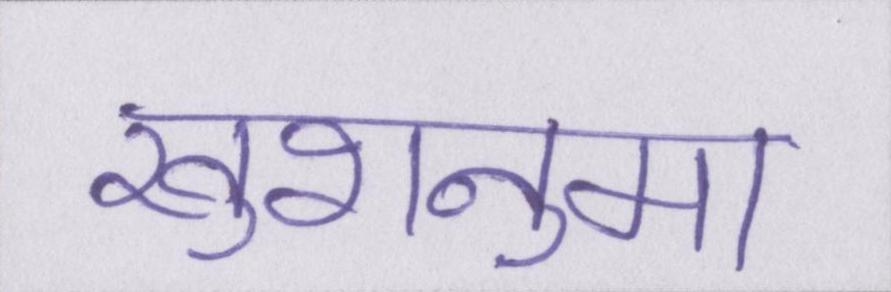 खुशनुमा